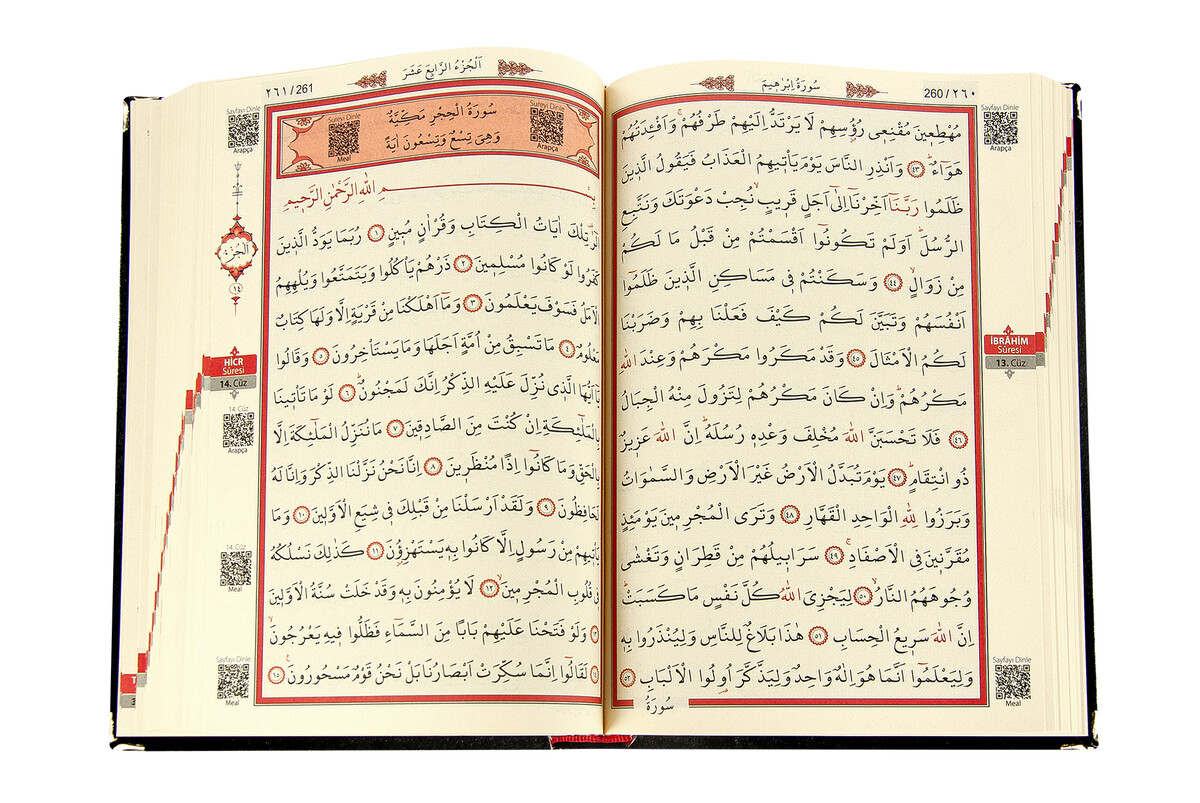 260 / ٢٦٠
سُورَةُ اِبْرٰه۪يمَ
Sayfayı Dinle
Arapça
مُهْطِع۪ينَ مُقْنِع۪ي رُؤُ۫سِهِمْ لَا يَرْتَدُّ اِلَيْهِمْ طَرْفُهُمْۚ وَاَفْـِٔدَتُهُمْ
هَوَٓاءٌۜ ﴿٤٣﴾ وَاَنْذِرِ النَّاسَ يَوْمَ يَأْت۪يهِمُ الْعَذَابُ فَيَقُولُ الَّذ۪ينَ
ظَلَمُوا رَبَّنَٓا اَخِّرْنَٓا اِلٰٓى اَجَلٍ قَر۪يبٍۙ نُجِبْ دَعْوَتَكَ وَنَتَّبِعِ
الرُّسُلَۜ اَوَلَمْ تَكُونُٓوا اَقْسَمْتُمْ مِنْ قَبْلُ مَا لَكُمْ
مِنْ زَوَالٍۙ ﴿٤٤﴾ وَسَكَنْتُمْ ف۪ي مَسَاكِنِ الَّذ۪ينَ ظَلَمُٓوا
اَنْفُسَهُمْ وَتَبَيَّنَ لَكُمْ كَيْفَ فَعَلْنَا بِهِمْ وَضَرَبْنَا
لَكُمُ الْاَمْثَالَ ﴿٤٥﴾ وَقَدْ مَكَرُوا مَكْرَهُمْ وَعِنْدَ اللّٰهِ
مَكْرُهُمْۜ وَاِنْ كَانَ مَكْرُهُمْ لِتَزُولَ مِنْهُ الْجِبَالُ
﴿٤٦﴾ فَلَا تَحْسَبَنَّ اللّٰهَ مُخْلِفَ وَعْدِه۪ رُسُلَهُۜ اِنَّ اللّٰهَ عَز۪يزٌ
ذُو انْتِقَامٍۜ ﴿٤٧﴾ يَوْمَ تُبَدَّلُ الْاَرْضُ غَيْرَ الْاَرْضِ وَالسَّمٰوَاتُ
وَبَرَزُوا لِلّٰهِ الْوَاحِدِ الْقَهَّارِ ﴿٤٨﴾ وَتَرَى الْمُجْرِم۪ينَ يَوْمَئِذٍ
مُقَرَّن۪ينَ فِي الْاَصْفَادِۚ ﴿٤٩﴾ سَرَاب۪يلُهُمْ مِنْ قَطِرَانٍ وَتَغْشٰى
وُجُوهَهُمُ النَّارُۙ ﴿٥٠﴾ لِيَجْزِيَ اللّٰهُ كُلَّ نَفْسٍ مَا كَسَبَتْۜ
اِنَّ اللّٰهَ سَر۪يعُ الْحِسَابِ ﴿٥١﴾ هٰذَا بَلَاغٌ لِلنَّاسِ وَلِيُنْذَرُوا بِه۪
وَلِيَعْلَمُٓوا اَنَّمَا هُوَ اِلٰهٌ وَاحِدٌ وَلِيَذَّكَّرَ اُو۬لُوا الْاَلْبَابِ ﴿٥٢﴾
سُورَةُ
İBRÂHİM
Sûresi
13. Cüz
Sayfayı Dinle
Meal
٢٦١ / 261
اَلْجُزْءُ الرَّابِعَ عَشَرَ
Sayfayı Dinle
Arapça
Sureyi Dinle
Meal
سُورَةُ الْحِجْرِ مَكِّيَّةٌ
وَهِيَ تِسْعٌ وَتِسْعُونَ اٰيَةً
Sureyi Dinle
Arapça
بِسْمِ اللّٰهِ الرَّحْمٰنِ الرَّح۪يمِ
الٓرٰ۠ تِلْكَ اٰيَاتُ الْكِتَابِ وَقُرْاٰنٍ مُب۪ينٍ ﴿١﴾ رُبَمَا يَوَدُّ الَّذ۪ينَ
كَفَرُوا لَوْ كَانُوا مُسْلِم۪ينَ ﴿٢﴾ ذَرْهُمْ يَأْكُلُوا وَيَتَمَتَّعُوا وَيُلْهِهِمُ
الْاَمَلُ فَسَوْفَ يَعْلَمُونَ ﴿٣﴾ وَمَٓا اَهْلَكْنَا مِنْ قَرْيَةٍ اِلَّا وَلَهَا كِتَابٌ
مَعْلُومٌ ﴿٤﴾ مَا تَسْبِقُ مِنْ اُمَّةٍ اَجَلَهَا وَمَا يَسْتَأْخِرُونَ ﴿٥﴾ وَقَالُوا
يَٓا اَيُّهَا الَّذ۪ي نُزِّلَ عَلَيْهِ الذِّكْرُ اِنَّكَ لَمَجْنُونٌۜ ﴿٦﴾ لَوْ مَا تَأْت۪ينَا
بِالْمَلٰٓئِكَةِ اِنْ كُنْتَ مِنَ الصَّادِق۪ينَ ﴿٧﴾ مَا نُنَزِّلُ الْمَلٰٓئِكَةَ اِلَّا
بِالْحَقِّ وَمَا كَانُٓوا اِذًا مُنْظَر۪ينَ ﴿٨﴾ اِنَّا نَحْنُ نَزَّلْنَا الذِّكْرَ وَاِنَّا لَهُ
لَحَافِظُونَ ﴿٩﴾ وَلَقَدْ اَرْسَلْنَا مِنْ قَبْلِكَ ف۪ي شِيَعِ الْاَوَّل۪ينَ ﴿١٠﴾ وَمَا
يَأْت۪يهِمْ مِنْ رَسُولٍ اِلَّا كَانُوا بِه۪ يَسْتَهْزِؤُ۫نَ ﴿١١﴾ كَذٰلِكَ نَسْلُكُهُ
ف۪ي قُلُوبِ الْمُجْرِم۪ينَۙ ﴿١٢﴾ لَا يُؤْمِنُونَ بِه۪ وَقَدْ خَلَتْ سُنَّةُ الْاَوَّل۪ينَ
﴿١٣﴾ وَلَوْ فَتَحْنَا عَلَيْهِمْ بَابًا مِنَ السَّمَٓاءِ فَظَلُّوا ف۪يهِ يَعْرُجُونَۙ
﴿١٤﴾ لَقَالُٓوا اِنَّمَا سُكِّرَتْ اَبْصَارُنَا بَلْ نَحْنُ قَوْمٌ مَسْحُورُونَ۟ ﴿١٥﴾
اَلْجُزْءُ
١٤
HİCR
Sûresi
14. Cüz
14. Cüz
Arapça
14. Cüz
Meal
Sayfayı Dinle
Meal